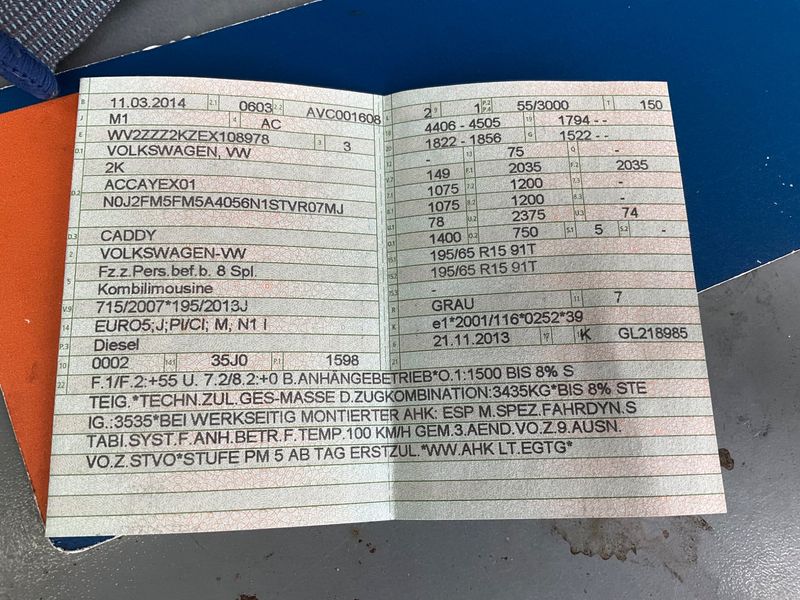 B 11.03.2014 2.1 0603 2.2 AVC001608
J M1 4 AC
E WV2ZZZ2KZEX108978 3 3
D.1 VOLKSWAGEN, VW
2K
D.2 ACCAYEX01
N0J2FM5FM5A4056N1STVR07MJ
D.3 CADDY
2 VOLKSWAGEN-VW
5 Fz.z.Pers.bef.b. 8 Spl.
Kombilimousine
V.9 715/2007*195/2013J
14 EURO5;J;PI/CI; M, N1 I
P.3 Diesel
10 0002 14.1 35J0 P.1 1598
L 2 9 1 P.2 P.4 55/3000 T 150
18 4406 - 4505 19 1794 - -
20 1822 - 1856 G 1522 - -
12 - 13 75 Q -
V.7 149 F.1 2035 F.2 2035
7.1 1075 7.2 1200 7.3 -
8.1 1075 8.2 1200 8.3 -
U.1 78 U.2 2375 U.3 74
O.1 1400 O.2 750 S.1 5 S.2 -
15.1 195/65 R15 91T
15.2 195/65 R15 91T
15.3 -
R GRAU 11 7
K e1*2001/116*0252*39
6 21.11.2013 17 K 16 GL218985
21
22 F.1/F.2:+55 U. 7.2/8.2:+0 B.ANHÄNGEBETRIEB*O.1:1500 BIS 8% S
TEIG.*TECHN.ZUL.GES-MASSE D.ZUGKOMBINATION:3435KG*BIS 8% STE
IG.:3535*BEI WERKSEITIG MONTIERTER AHK: ESP M.SPEZ.FAHRDYN.S
TABI.SYST.F.ANH.BETR.F.TEMP.100 KM/H GEM.3.AEND.VO.Z.9.AUSN.
VO.Z.STVO*STUFE PM 5 AB TAG ERSTZUL.*WW.AHK LT.EGTG*